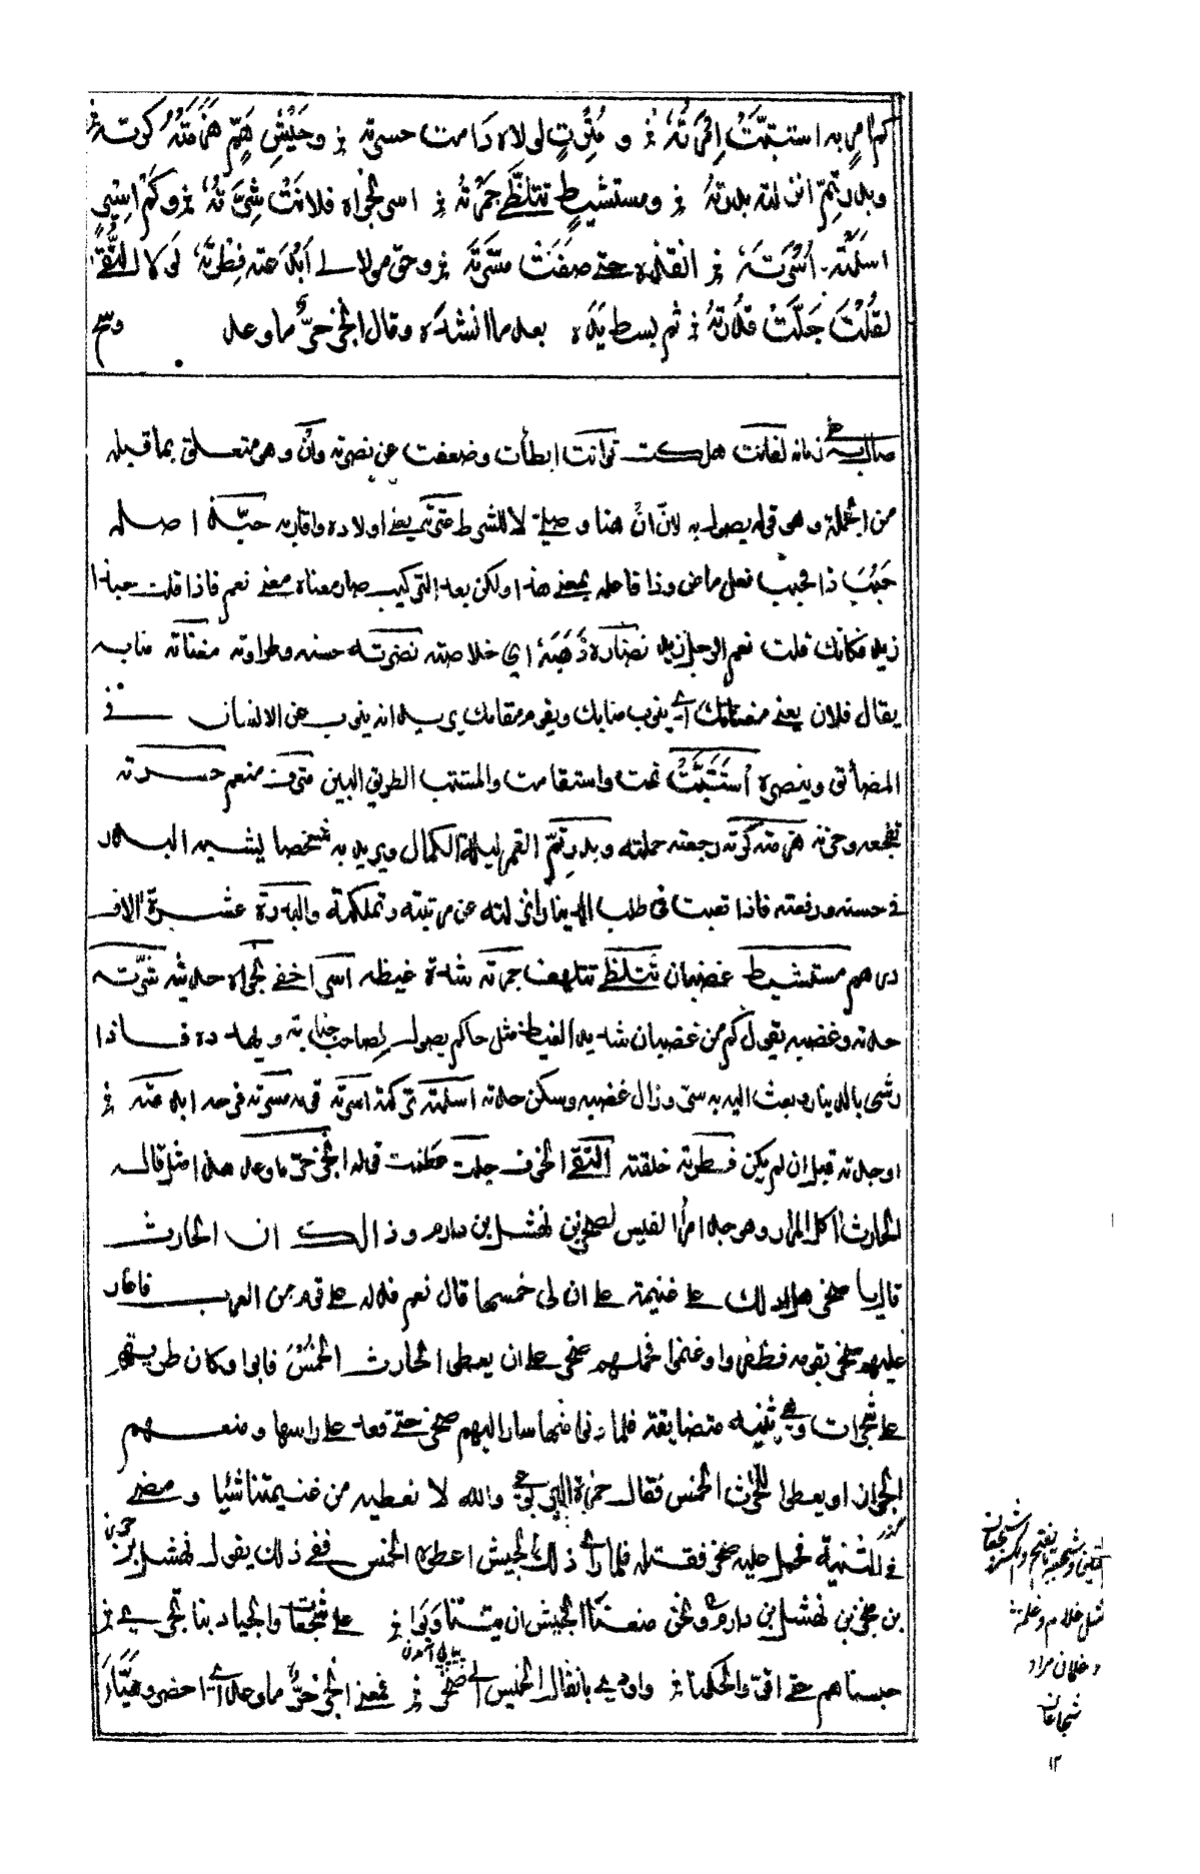 كم آمر به استتبت إمرته و مترف لولاه دامت حسرته وجيش هم هزمته كرته
وبدر تم انزلته بدرته ومستشيط تتلظى جمرته اسر نجواه فلانت شرته وكم اسير
اسلمته اسرته انقذه حتى صفت مسرته وحق مولى ابدعته فطرته لولا التقى
لقلت جلت قدرته ثم بسط يده بعد ما انشده وقال انجز حر ما وعد وسح
توانت ابطأت وضعفت عن نصرته وان وهو متعلق بما قبله
من الجملة وهو قوله يصول به لان ان هنا وصلية لا للشرط عترته يعني اولاده واقاربه حبذا اصله
حبب ذا فحبب فعل ماض وذا فاعله بمعنى هذا ولكن بعد التركيب صار معناه معنى نعم فاذا قلت حبذا
زيد فكانك قلت نعم الرجل زيد نضاره ذهبه اي خلاصته نضرته حسنه وطراوته مغناته منابه
يقال فلان يغني مغناتك اي ينوب منابك ويقوم مقامك يريد انه ينوب عن الانسان في
المضائق وينصره استتبت تمت واستقامت والمستتب الطريق البين مترف منعم حسرته
تفجعه وحزنه هزمته كرته رجعته حملته وبدر تم القمر ليلة الكمال ويريد به شخصا يشبه البدر
في حسنه ورفعته فاذا تعبت في طلب الدينار انزلته عن مرتبته وتملكته والبدرة عشرة الاف
درهم مستشيط غضبان تتلظى تتلهف جمرته شدة غيظه اسر اخفى نجواه حديثه شرته
حدته وغضبه يقول كم من غضبان شديد الغيظ مثل حاكم يصول لصاحب جناية ويهدده فاذا
رشى بالدينار وبعث اليه به سرا وزال غضبه وسكن حدته اسلمته تركته اسرته قومه مسرته فرحه ابدعته
اوجدته قبل ان لم يكن فطرته خلقته التقى الخوف جلت عظمت قوله انجز حر ما وعد هذا مثل قاله
الحارث آكل المرار وهو جد امرأ القيس لصخر بن نهشل بن دارم وذالك ان الحارث
قال يا صخر هل ادلك على غنيمة على ان لي خمسها قال نعم فدله على قوم من العرب فاغار
عليهم صخر بقومه فظفروا وغنموا فحملهم صخر على ان يعطوا الحارث الخمس فابوا وكان طريقهم
على شجرات وهي ثنية متضايقة فلما دنى منها سار اليهم صخر حتى قعد على راسها ومنعهم
الجوار او يعطوا للحارث الخمس فقال حمزة اليربوعي والله لا نعطيه من غنيمتنا شئيا ومضى
في الثنية فحمل عليه صخر فقتله فلما راى ذلك الجيش اعطوه الخمس ففي ذلك يقول نهشل بن حري
بن صخر بن نهشل بن دارم ونحن منعنا الجيش ان يتناوبوا على شجعات والجياد بنا تجري
حبسناهم حتى اقروا بحكمنا وادي بانفال الخميس الى صخر فمعنى انجز حر ما وعد اي احضر وهيأ
لثل غلام وغلمة
وغلمان مراد
شجاعان
١٢